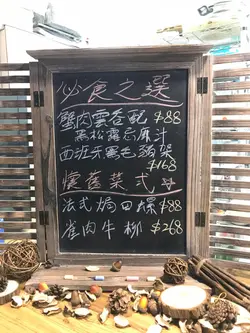 必食之選
蟹肉雲吞配 $88
黑松露忌廉汁
西班牙黑毛豬架
$168
懷舊菜式
法式焗田螺 $88
雀肉牛柳 $268